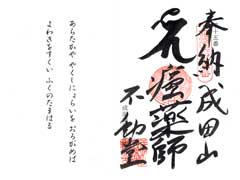 奉納
十五番
成田山
瘡薬師
不動堂
あらたかや やくしにょらいを おろがめば
よわきをすくい ふくのたまはる